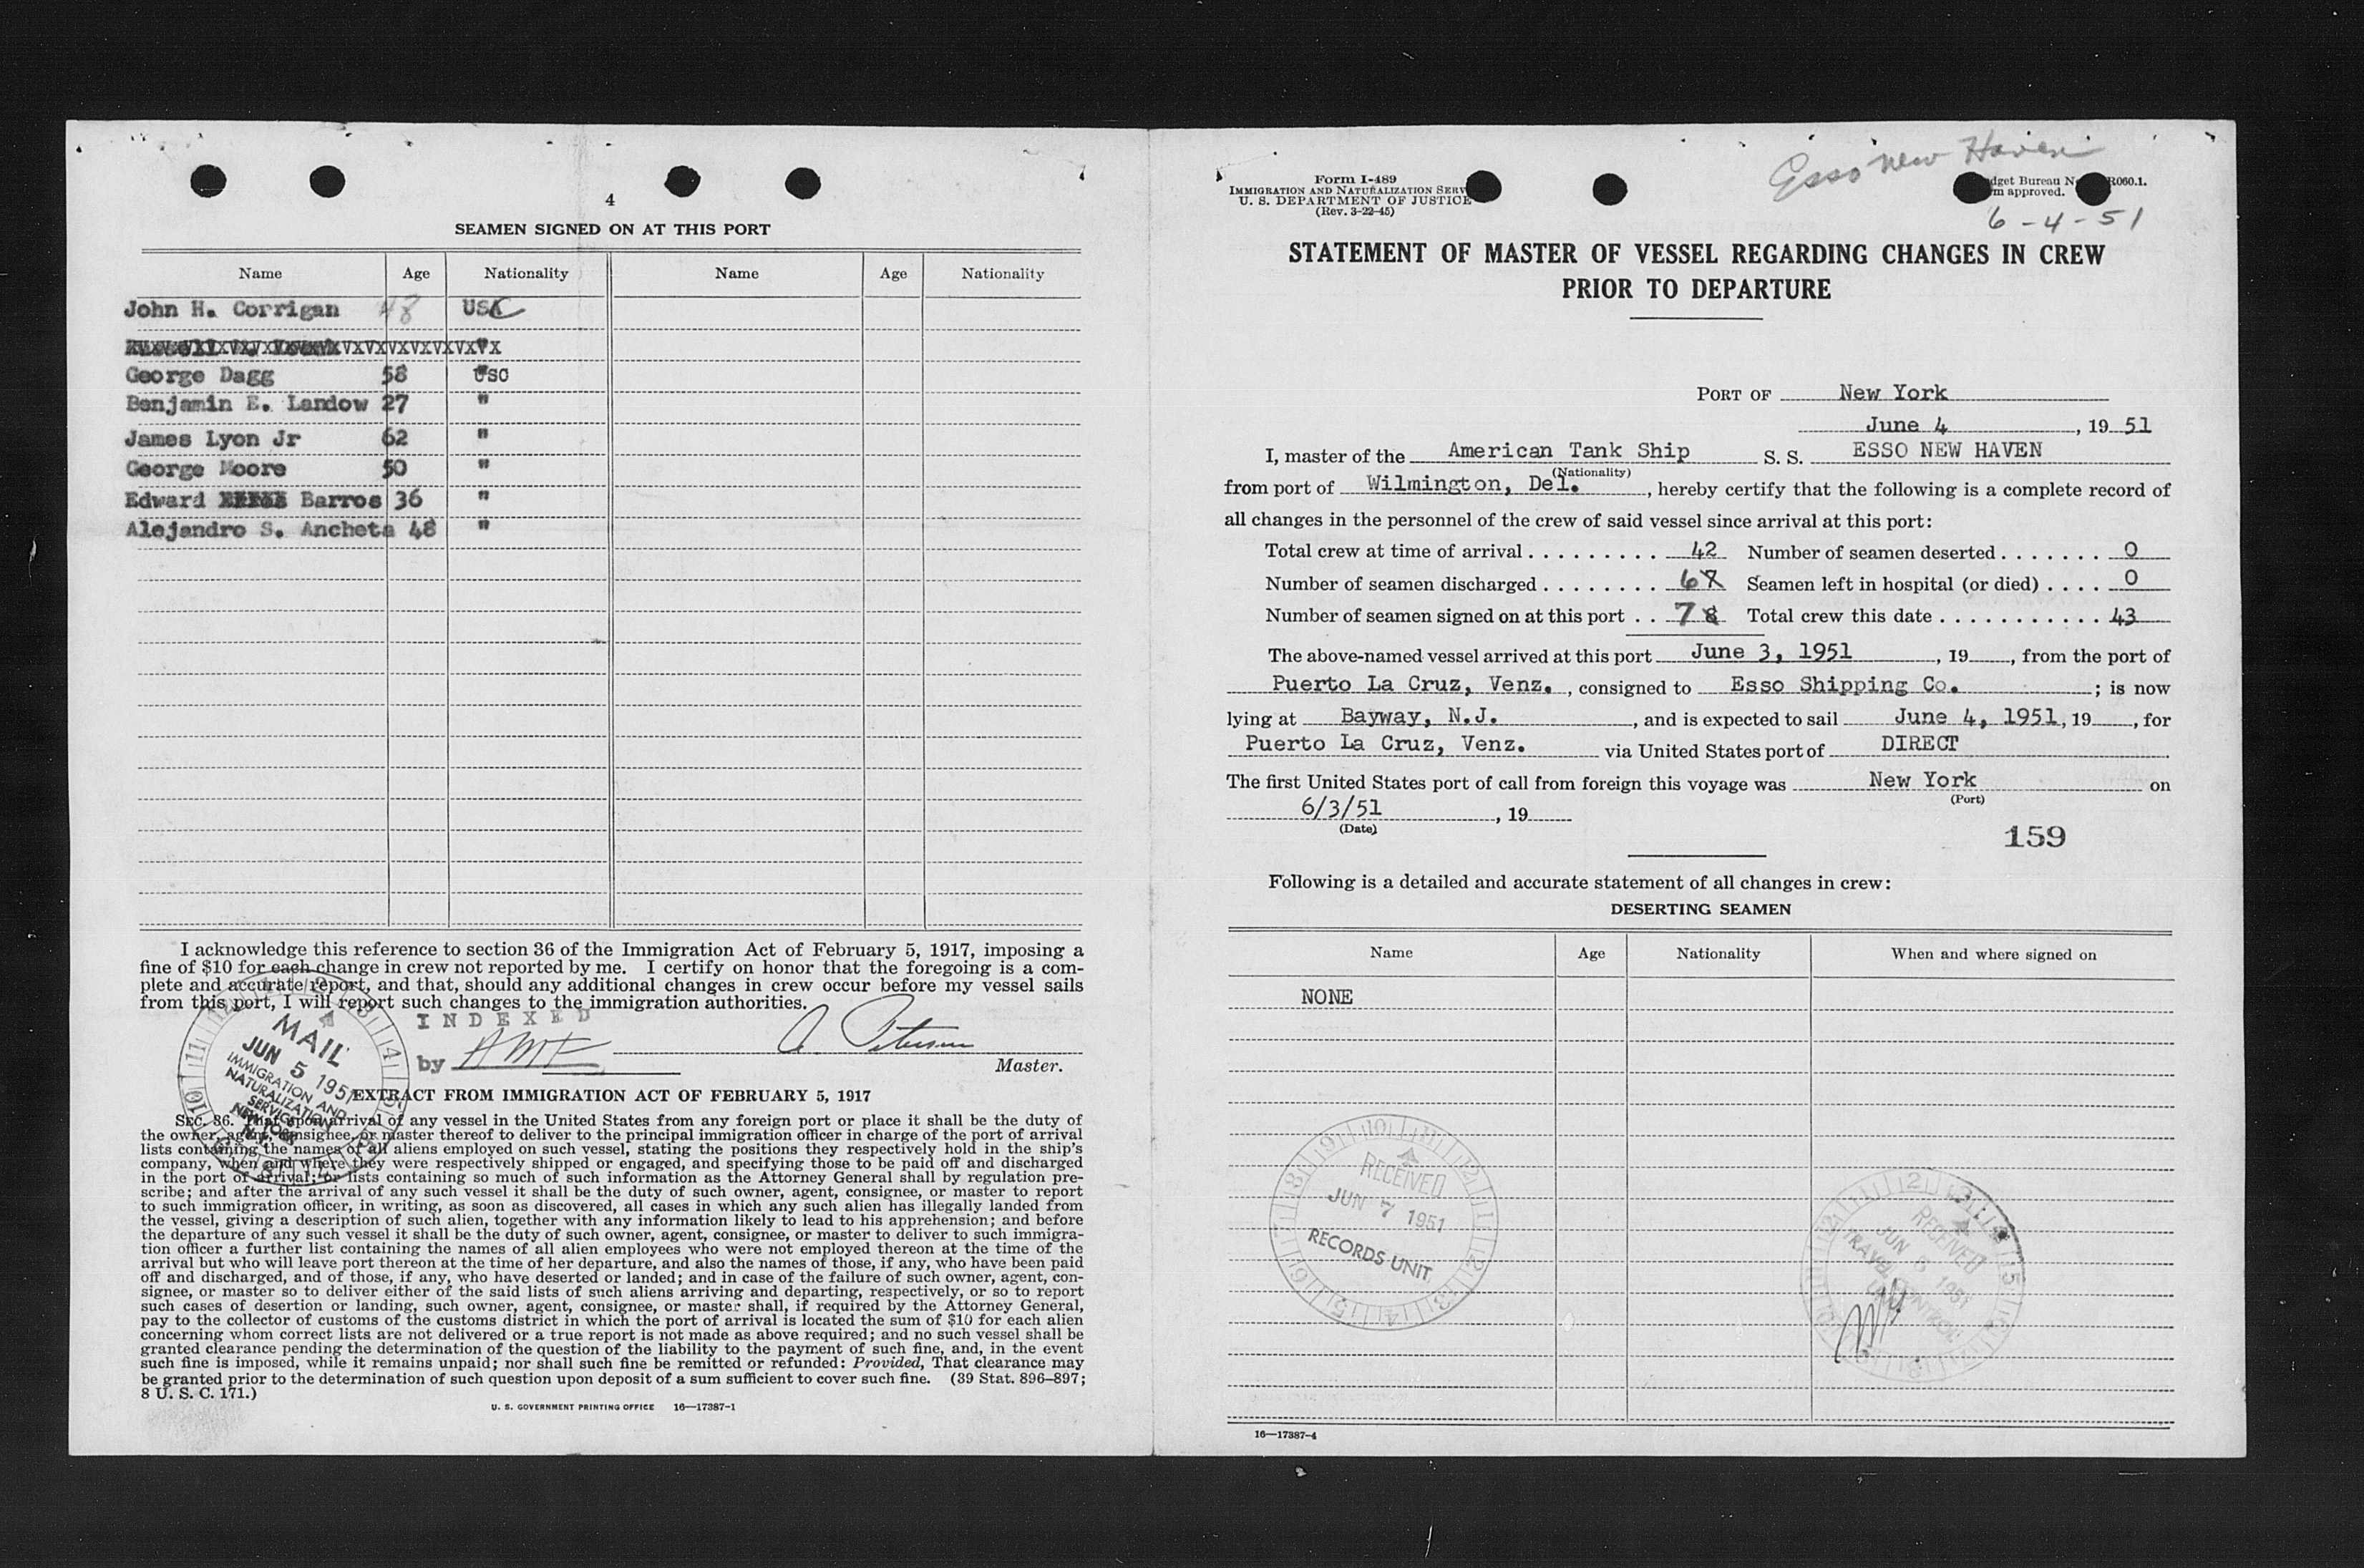 4
SEAMEN SIGNED ON AT THIS PORT
Name Age Nationality Name Age Nationality
John H. Corrigan 48 USC
"
George Dagg 58 USC
Benjamin E. Landow 27 "
James Lyon Jr 62 "
George Moore 50 "
Edward Barros 36 "
Alejandro S. Ancheta 48 "
I acknowledge this reference to section 36 of the Immigration Act of February 5, 1917, imposing a
fine of $10 for each change in crew not reported by me. I certify on honor that the foregoing is a com-
plete and accurate report, and that, should any additional changes in crew occur before my vessel sails
from this port, I will report such changes to the immigration authorities.
INDEXED
by AMF
Peterson
Master.
MAIL
JUN 5 1951
IMMIGRATION AND
NATURALIZATION
SERVICE
NEW YORK
N.Y.
EXTRACT FROM IMMIGRATION ACT OF FEBRUARY 5, 1917
SEC. 36. That upon arrival of any vessel in the United States from any foreign port or place it shall be the duty of
the owner, agent, consignee, or master thereof to deliver to the principal immigration officer in charge of the port of arrival
lists containing the names of all aliens employed on such vessel, stating the positions they respectively hold in the ship's
company, when and where they were respectively shipped or engaged, and specifying those to be paid off and discharged
in the port of arrival; or lists containing so much of such information as the Attorney General shall by regulation pre-
scribe; and after the arrival of any such vessel it shall be the duty of such owner, agent, consignee, or master to report
to such immigration officer, in writing, as soon as discovered, all cases in which any such alien has illegally landed from
the vessel, giving a description of such alien, together with any information likely to lead to his apprehension; and before
the departure of any such vessel it shall be the duty of such owner, agent, consignee, or master to deliver to such immigra-
tion officer a further list containing the names of all alien employees who were not employed thereon at the time of the
arrival but who will leave port thereon at the time of her departure, and also the names of those, if any, who have been paid
off and discharged, and of those, if any, who have deserted or landed; and in case of the failure of such owner, agent, con-
signee, or master so to deliver either of the said lists of such aliens arriving and departing, respectively, or so to report
such cases of desertion or landing, such owner, agent, consignee, or master shall, if required by the Attorney General,
pay to the collector of customs of the customs district in which the port of arrival is located the sum of $10 for each alien
concerning whom correct lists are not delivered or a true report is not made as above required; and no such vessel shall be
granted clearance pending the determination of the question of the liability to the payment of such fine, and, in the event
such fine is imposed, while it remains unpaid; nor shall such fine be remitted or refunded: Provided, That clearance may
be granted prior to the determination of such question upon deposit of a sum sufficient to cover such fine. (39 Stat. 896–897;
8 U. S. C. 171.)
U. S. GOVERNMENT PRINTING OFFICE 16—17387-1
Esso New Haven
6-4-51
Form I-489
IMMIGRATION AND NATURALIZATION SERV
U. S. DEPARTMENT OF JUSTICE
(Rev. 3-22-45)
dget Bureau N R060.1.
m approved.
STATEMENT OF MASTER OF VESSEL REGARDING CHANGES IN CREW
PRIOR TO DEPARTURE
PORT OF New York
June 4, 19 51
I, master of the American Tank Ship S. S. ESSO NEW HAVEN
(Nationality)
from port of Wilmington, Del., hereby certify that the following is a complete record of
all changes in the personnel of the crew of said vessel since arrival at this port:
Total crew at time of arrival . . . . . . . . . 42 Number of seamen deserted . . . . . . . 0
Number of seamen discharged . . . . . . . . 6 7 Seamen left in hospital (or died) . . . . 0
Number of seamen signed on at this port . . 7 8 Total crew this date . . . . . . . . . . . 43
The above-named vessel arrived at this port June 3, 1951, 19 , from the port of
Puerto La Cruz, Venz., consigned to Esso Shipping Co. ; is now
lying at Bayway, N.J., and is expected to sail June 4, 1951, 19 , for
Puerto La Cruz, Venz. via United States port of DIRECT
The first United States port of call from foreign this voyage was New York on
(Port)
6/3/51, 19
(Date)
159
Following is a detailed and accurate statement of all changes in crew:
DESERTING SEAMEN
Name Age Nationality When and where signed on
NONE
RECEIVED
JUN 7 1951
RECORDS UNIT
RECEIVED
JUN 1951
TRAVEL CONTROL
UNIT
16—17387-4